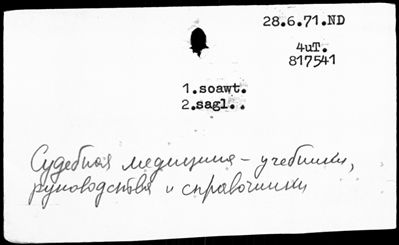 28.6.71.ND
4uT.
817541
1.soawt.
2.sagl..
Судебная медицина – учебники,
руководства и справочники